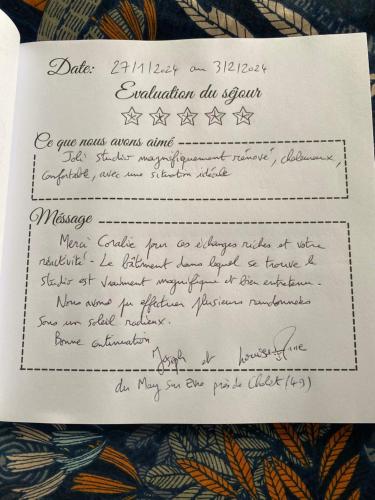 Date: 27/1/2024 au 3/2/2024
Evaluation du séjour
Ce que nous avons aimé
Joli studio magnifiquement rénové, chaleureux,
confortable, avec une situation idéale
Méssage
Merci Coralie pour ces échanges riches et votre
réactivité. Le bâtiment dans lequel se trouve le
studio est vraiment magnifique et bien entretenu.
Nous avons pu effectuer plusieurs randonnées
sous un soleil radieux.
Bonne continuation
Joseph et
du May sur Evre près de Cholet (49)